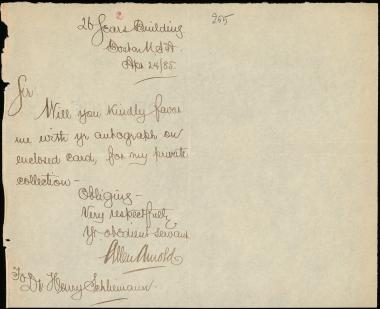 2
265
26 Sears Building
Boston U.S.A.
Apr 24/85.
Sir
Will you kindly favor
me with yr autograph on
enclosed card, for my private
collection—
Obliging—
Very respectfully
Yr obedient servant
Allen Arnold
To Dr Henry Schliemann.